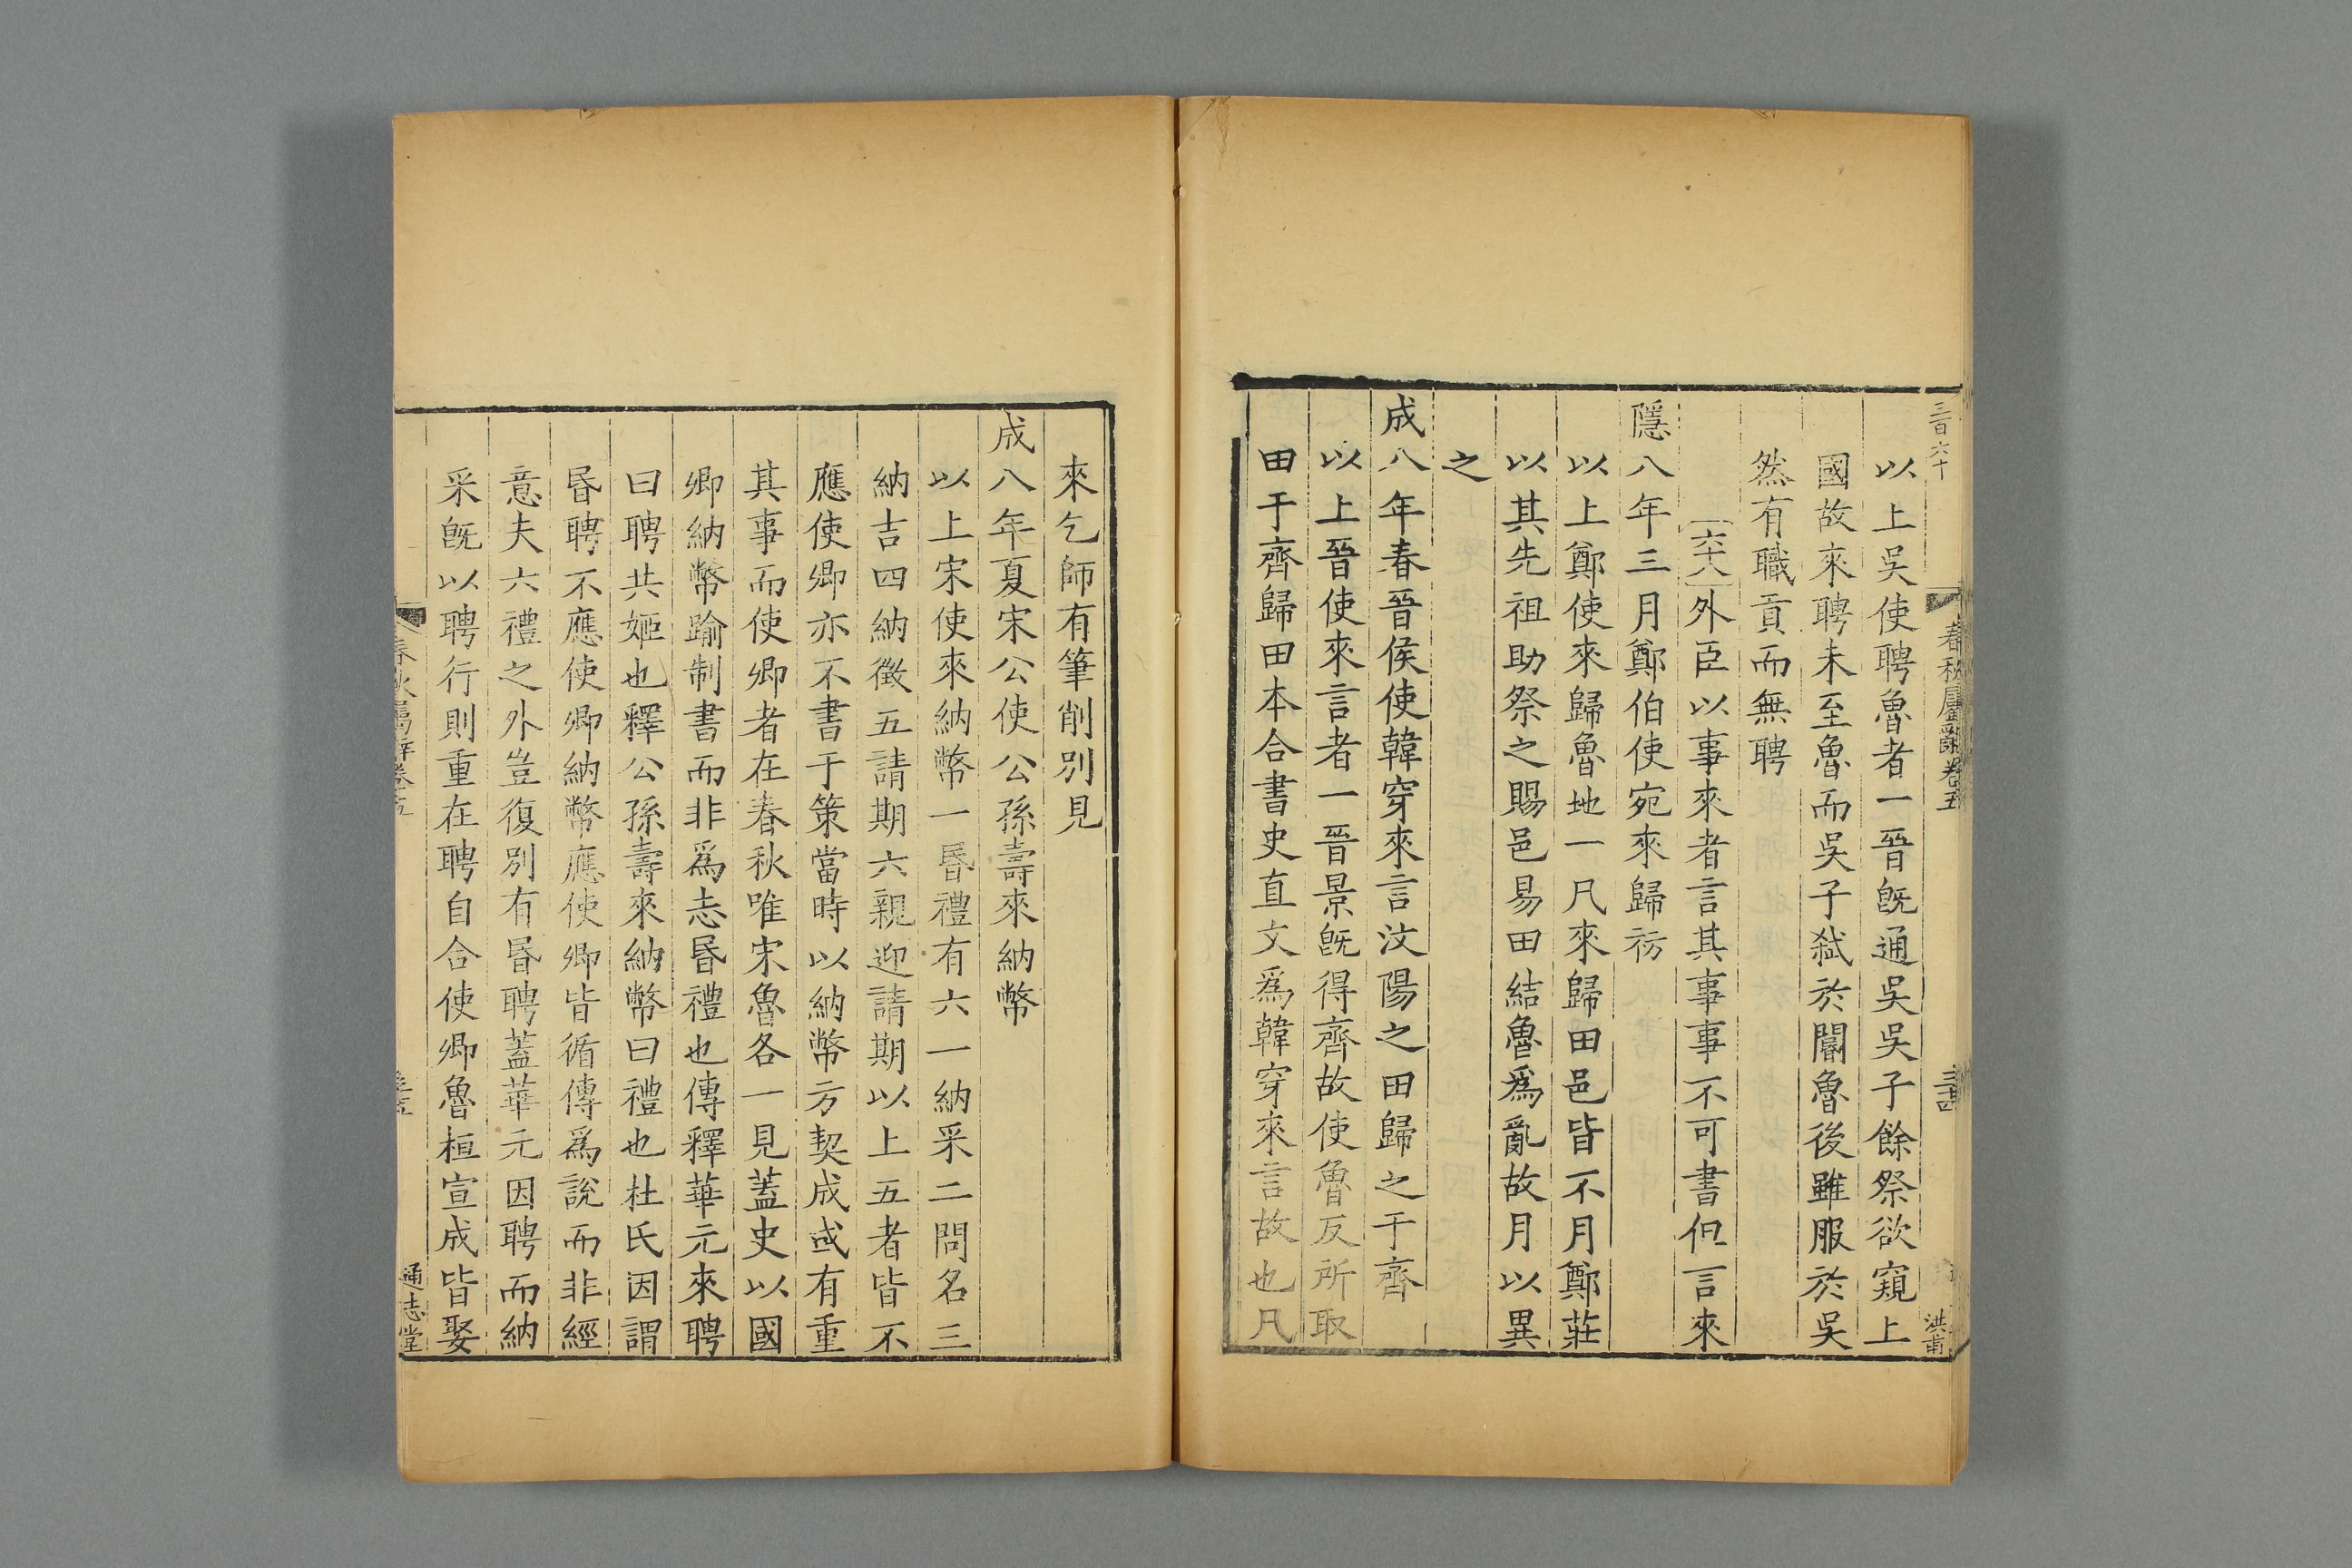 三百六十
春秋屬辭卷五
三十四
洪甫
以上吳使聘魯者一晉旣通吳吳子餘祭欲窺上
國故來聘未至魯而吳子弑於閽魯後雖服於吳
然有職貢而無聘
六十八外臣以事來者言其事事不可書但言來
隱八年三月鄭伯使宛來歸祊
以上鄭使來歸魯地一凡來歸田邑皆不月鄭莊
以其先祖助祭之賜邑易田結魯爲亂故月以異
之
成八年春晉侯使韓穿來言汶陽之田歸之于齊
以上晉使來言者一晉景旣得齊故使魯反所取
田于齊歸田本合書史直文爲韓穿來言故也凡
來乞師有筆削別見
成八年夏宋公使公孫壽來納幣
以上宋使來納幣一昬禮有六一納采二問名三
納吉四納徵五請期六親迎請期以上五者皆不
應使卿亦不書于策當時以納幣方契成或有重
其事而使卿者在春秋唯宋魯各一見蓋史以國
卿納幣踰制書而非爲志昬禮也傳釋華元來聘
曰聘共姬也釋公孫壽來納幣曰禮也杜氏因謂
昬聘不應使卿納幣應使卿皆循傳爲說而非經
意夫六禮之外豈復別有昬聘蓋華元因聘而納
采旣以聘行則重在聘自合使卿魯桓宣成皆娶
春秋屬辭卷五
通志堂